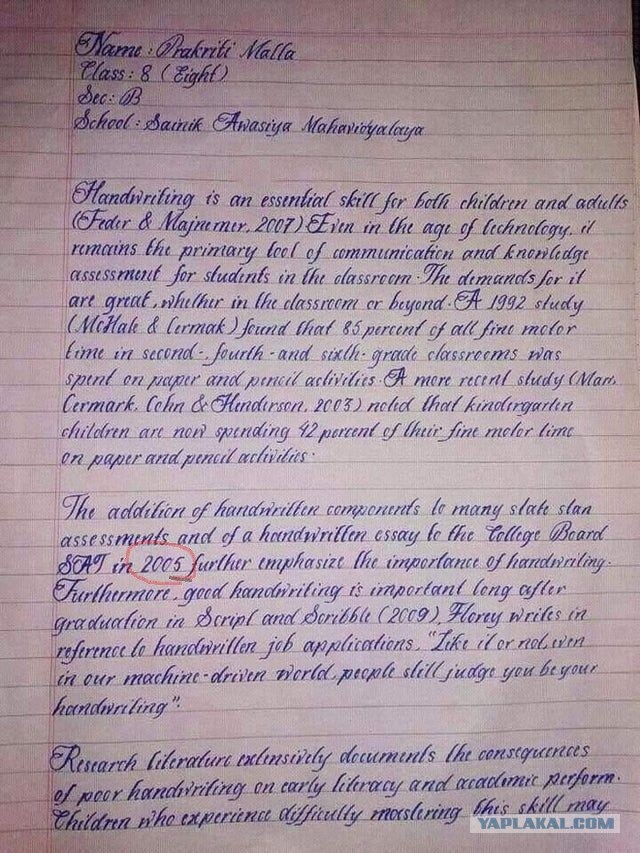 Name : Prakriti Malla
Class : 8 (Eight)
Sec : B
School : Sainik Awasiya Mahavidyalaya
Handwriting is an essential skill for both children and adults
(Feder & Majnemer, 2007) Even in the age of technology, it
remains the primary tool of communication and knowledge
assessment for students in the classroom. The demands for it
are great, whether in the classroom or beyond. A 1992 study
(McHale & Cermak) found that 85 percent of all fine motor
time in second-, fourth- and sixth- grade classrooms was
spent on paper and pencil activities. A more recent study (Marr,
Cermark, Cohn & Henderson, 2003) noted that kindergarten
children are now spending 42 percent of their fine motor time
on paper and pencil activities.
The addition of handwritten components to many state stan
assessments and of a handwritten essay to the College Board
SAT in 2005 further emphasize the importance of handwriting.
Furthermore, good handwriting is important long after
graduation in Script and Scribble (2009), Florey writes in
reference to handwritten job applications, "Like it or not, even
in our machine-driven world, people still judge you be your
handwriting".
Research literature extensively documents the consequences
of poor handwriting on early literacy and academic perform.
Children who experience difficulty mastering this skill may
YAPLAKAL.COM